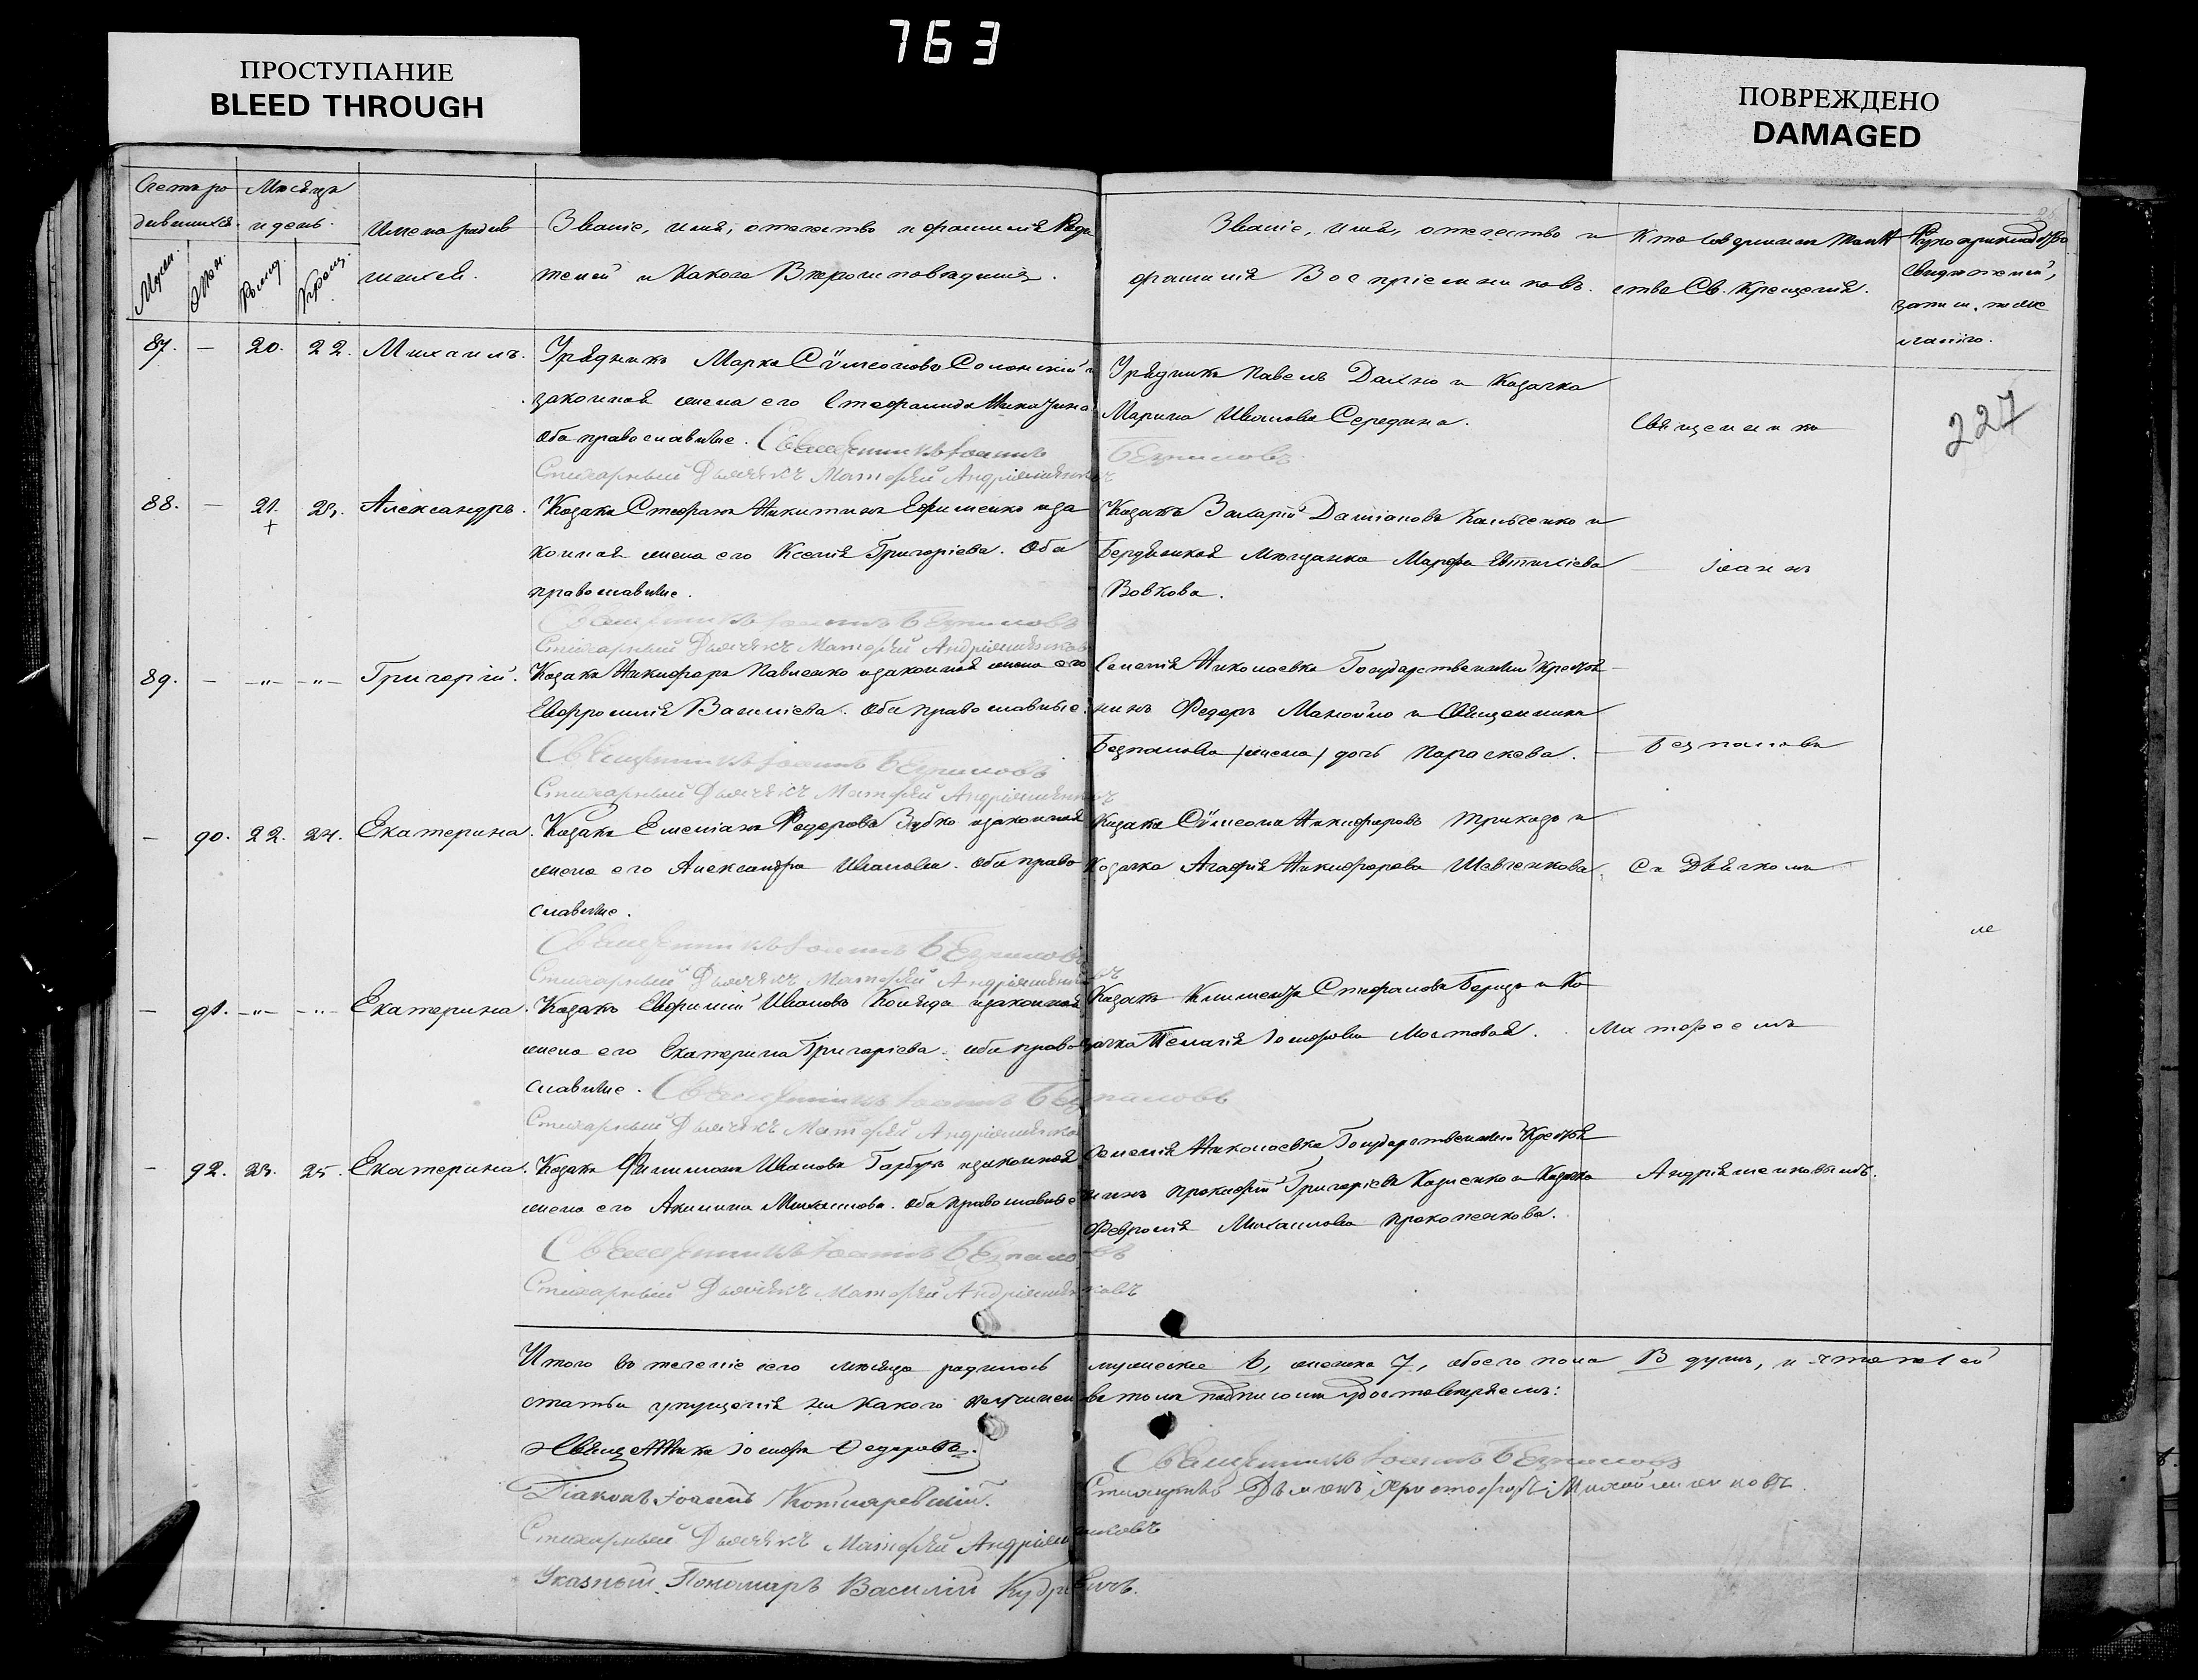 763
ПРОСТУПАНИЕ
BLEED THROUGH
ПОВРЕЖДЕНО
DAMAGED
Счетъ ро
дившихся.
Мѣсяцъ
и день.
Имена родив
шихся.
Званіе, имя, отчество и фамилія Роди
телей и Какого Вѣроисповѣданія.
Званіе, имя, отчество и
фамилія Воспріемниковъ.
Кто совершилъ таин
ство Св. Крещенія.
Рукоприкладство
свидѣтелей,
запис. по же
ланію.
Муж.
Жен.
Рожд.
Крещ.
227
87. — 20. 22. Михаилъ.
Урядникъ Марко Сѵмеоновъ Солонскій и
законная жена его Стефанида
Оба православные. Священникъ Іоаннъ
Безпаловъ.
Стихарный Дьячекъ Матфей Андріяшенковъ
Урядникъ Павелъ Дахно и Козачка
Марина Иванова Середина.
Священникъ
88. — 21. 23. Александръ.
Козакъ Стефанъ Никитинъ Ефименко и за
конная жена его Ксенія Григоріева. Оба
православные.
Священникъ Іоаннъ Безпаловъ
Стихарный Дьячекъ Матфей Андріяшенковъ
Козакъ Захарій Даміановъ Кальченко и
Бердянская Мѣщанка Марфа
Вовкова.
Іоаннъ
89. — -„- -„- Григорій.
Козакъ Никифоръ Павленко и законная жена его
Евфросинія Василіева. Оба православные.
Священникъ Іоаннъ Безпаловъ
Стихарный Дьячекъ Матфей Андріяшенковъ
Селенія Николаевка Государственный Крестья
нинъ Федоръ Манойло и Священника
Безпалова дочь Параскева.
Безпаловъ
— 90. 22. 24. Екатерина.
Козакъ Емеліанъ Федоровъ Зубко и законная
жена его Александра Иванова. Оба право
славные.
Священникъ Іоаннъ Безпаловъ
Стихарный Дьячекъ Матфей Андріяшенковъ
Козакъ Сѵмеонъ Никифоровъ и
Козачка Агафія Никифорова Шевченкова.
Съ Дьячкомъ
— 91. -„- -„- Екатерина.
Козакъ Евфимій Ивановъ Коляда и законная
жена его Екатерина Григоріева. оба право
славные. Священникъ Іоаннъ Безпаловъ
Стихарный Дьячекъ Матфей Андріяшенковъ
Козакъ Климентъ Стефановъ и Ко
зачка Пелагія Іосифова Мостовая.
Матфеемъ
— 92. 23. 25. Екатерина.
Козакъ Филимонъ Ивановъ Гарбузъ и законная
жена его Акилина Михаилова. Оба православные
Священникъ Іоаннъ Безпаловъ
Стихарный Дьячекъ Матфей Андріяшенковъ
Селенія Николаевка Государственный Крестья
нинъ Прокофій Григоріевъ и Козачка
Февронія Михаилова Прокопенкова.
Андріяшенковымъ.
Итого въ теченіе сего мѣсяца родилось мужеска 6, женска 7, обоего пола 13 душъ, и что по сей
статьи упущенія ни какого въ томъ подписомъ удостовѣряемъ:
Священникъ Іосифъ Федоровъ.
Священникъ Іоаннъ Безпаловъ
Діаконъ Іоаннъ Котляревскій.
Стихарный Дьячекъ Матфей Андріяшенковъ
Указный Пономарь Василій